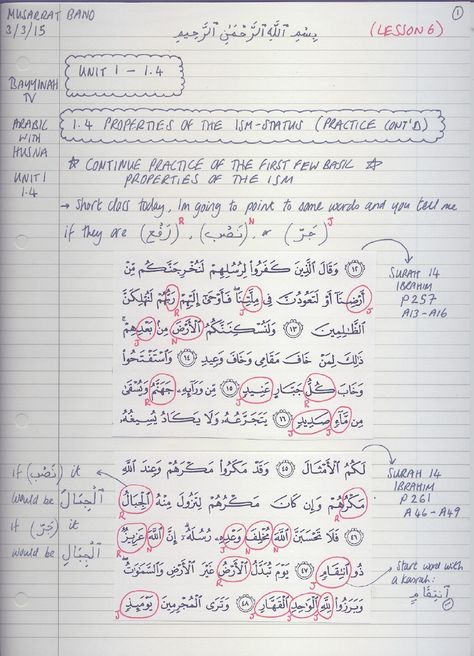 MUSARRAT BANO
3/3/15
بِسْمِ اللَّهِ الرَّحْمَٰنِ الرَّحِيمِ
(LESSON 6)
1
UNIT 1 - 1.4
BAYYINAH TV
ARABIC WITH HUSNA
UNIT 1
1.4
1.4 PROPERTIES OF THE ISM-STATUS (PRACTICE CONT'D)
☆ CONTINUE PRACTICE OF THE FIRST FEW BASIC ☆
PROPERTIES OF THE ISM
→ Short class today, I'm going to point to some words and you tell me
R N J
if they are (رَفْع), (نَصْب), or (جَرّ)
١٢ وَقَالَ الَّذِينَ كَفَرُوا لِرُسُلِهِمْ لَنُخْرِجَنَّكُم مِّنْ
أَرْضِنَا أَوْ لَتَعُودُنَّ فِي مِلَّتِنَا فَأَوْحَىٰ إِلَيْهِمْ رَبُّهُمْ لَنُهْلِكَنَّ
الظَّالِمِينَ ١٣ وَلَنُسْكِنَنَّكُمُ الْأَرْضَ مِن بَعْدِهِمْ
ذَٰلِكَ لِمَنْ خَافَ مَقَامِي وَخَافَ وَعِيدِ ١٤ وَاسْتَفْتَحُوا
وَخَابَ كُلُّ جَبَّارٍ عَنِيدٍ ١٥ مِّن وَرَائِهِ جَهَنَّمُ وَيُسْقَىٰ
مِن مَّاءٍ صَدِيدٍ ١٦ يَتَجَرَّعُهُ وَلَا يَكَادُ يُسِيغُهُ
SURAH 14
IBRAHIM
P 257
A13-A16
لَكُمُ الْأَمْثَالَ ٤٥ وَقَدْ مَكَرُوا مَكْرَهُمْ وَعِندَ اللَّهِ
مَكْرُهُمْ وَإِن كَانَ مَكْرُهُمْ لِتَزُولَ مِنْهُ الْجِبَالُ
٤٦ فَلَا تَحْسَبَنَّ اللَّهَ مُخْلِفَ وَعْدِهِ رُسُلَهُ إِنَّ اللَّهَ عَزِيزٌ
ذُو انتِقَامٍ ٤٧ يَوْمَ تُبَدَّلُ الْأَرْضُ غَيْرَ الْأَرْضِ وَالسَّمَاوَاتُ
وَبَرَزُوا لِلَّهِ الْوَاحِدِ الْقَهَّارِ ٤٨ وَتَرَى الْمُجْرِمِينَ يَوْمَئِذٍ
SURAH 14
IBRAHIM
P 261
A46-A49
if (نَصْب) it
would be الْجِبَالَ
if (جَرّ) it
would be الْجِبَالِ
Start word with
a kasrah:
اِنتِقَامٍ